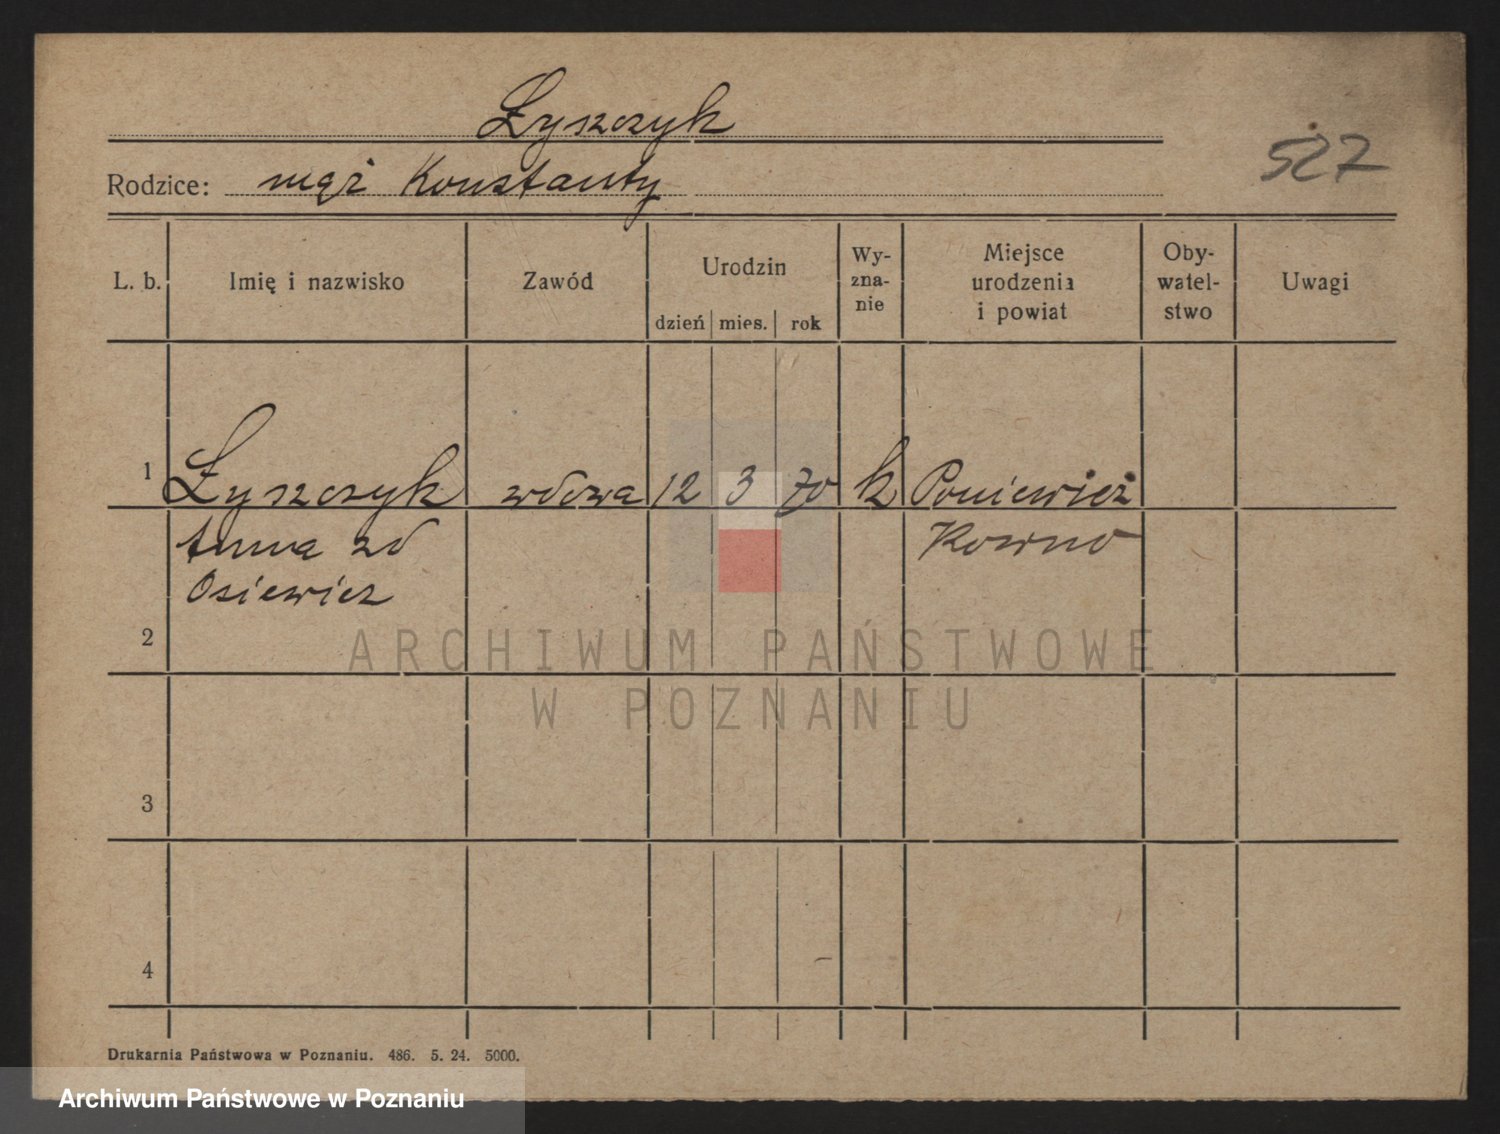 Łyszczyk
527
Rodzice: mąż Konstanty
L. b. Imię i nazwisko Zawód Urodzin dzień mies. rok Wy-zna-nie Miejsce urodzenia i powiat Oby-watel-stwo Uwagi
1 Łyszczyk wdowa 12 3 70 k Poniewież
Anna zd Kowno
Osiewicz
2
ARCHIWUM PAŃSTWOWE
W POZNANIU
3
4
Drukarnia Państwowa w Poznaniu. 486. 5. 24. 5000.
Archiwum Państwowe w Poznaniu